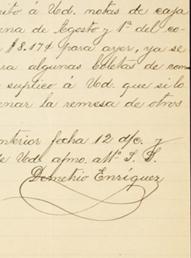 mito á Vd. notas de caja
ana de Agosto y 1ª del co-
$8.174 para ayer, ya se
ra algunas boletas de con
suplico á Vd. que si lo
enar la remesa de otros
nterior fecha 12 d/c. y
de Vd. afmo. attº S. S.
Demetrio Enríquez